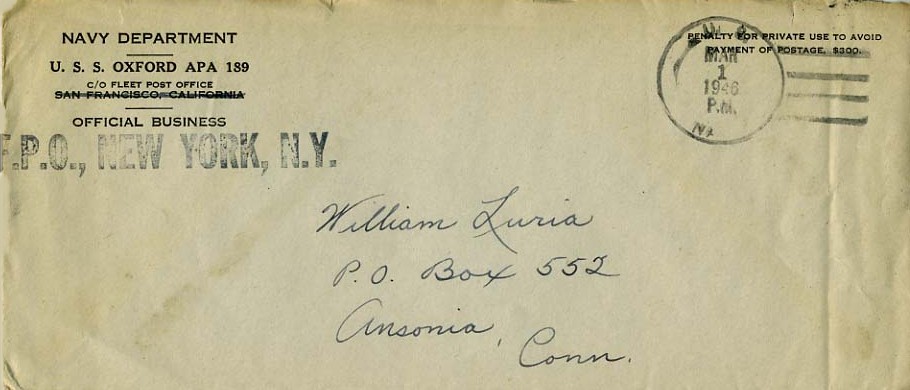 NAVY DEPARTMENT
U. S. S. OXFORD APA 189
C/O FLEET POST OFFICE
SAN FRANCISCO, CALIFORNIA
OFFICIAL BUSINESS
F.P.O., NEW YORK, N.Y.
PENALTY FOR PRIVATE USE TO AVOID
PAYMENT OF POSTAGE, $300.
MAR
1
1946
P.M.
William Luria
P.O. Box 552
Ansonia,
Conn.